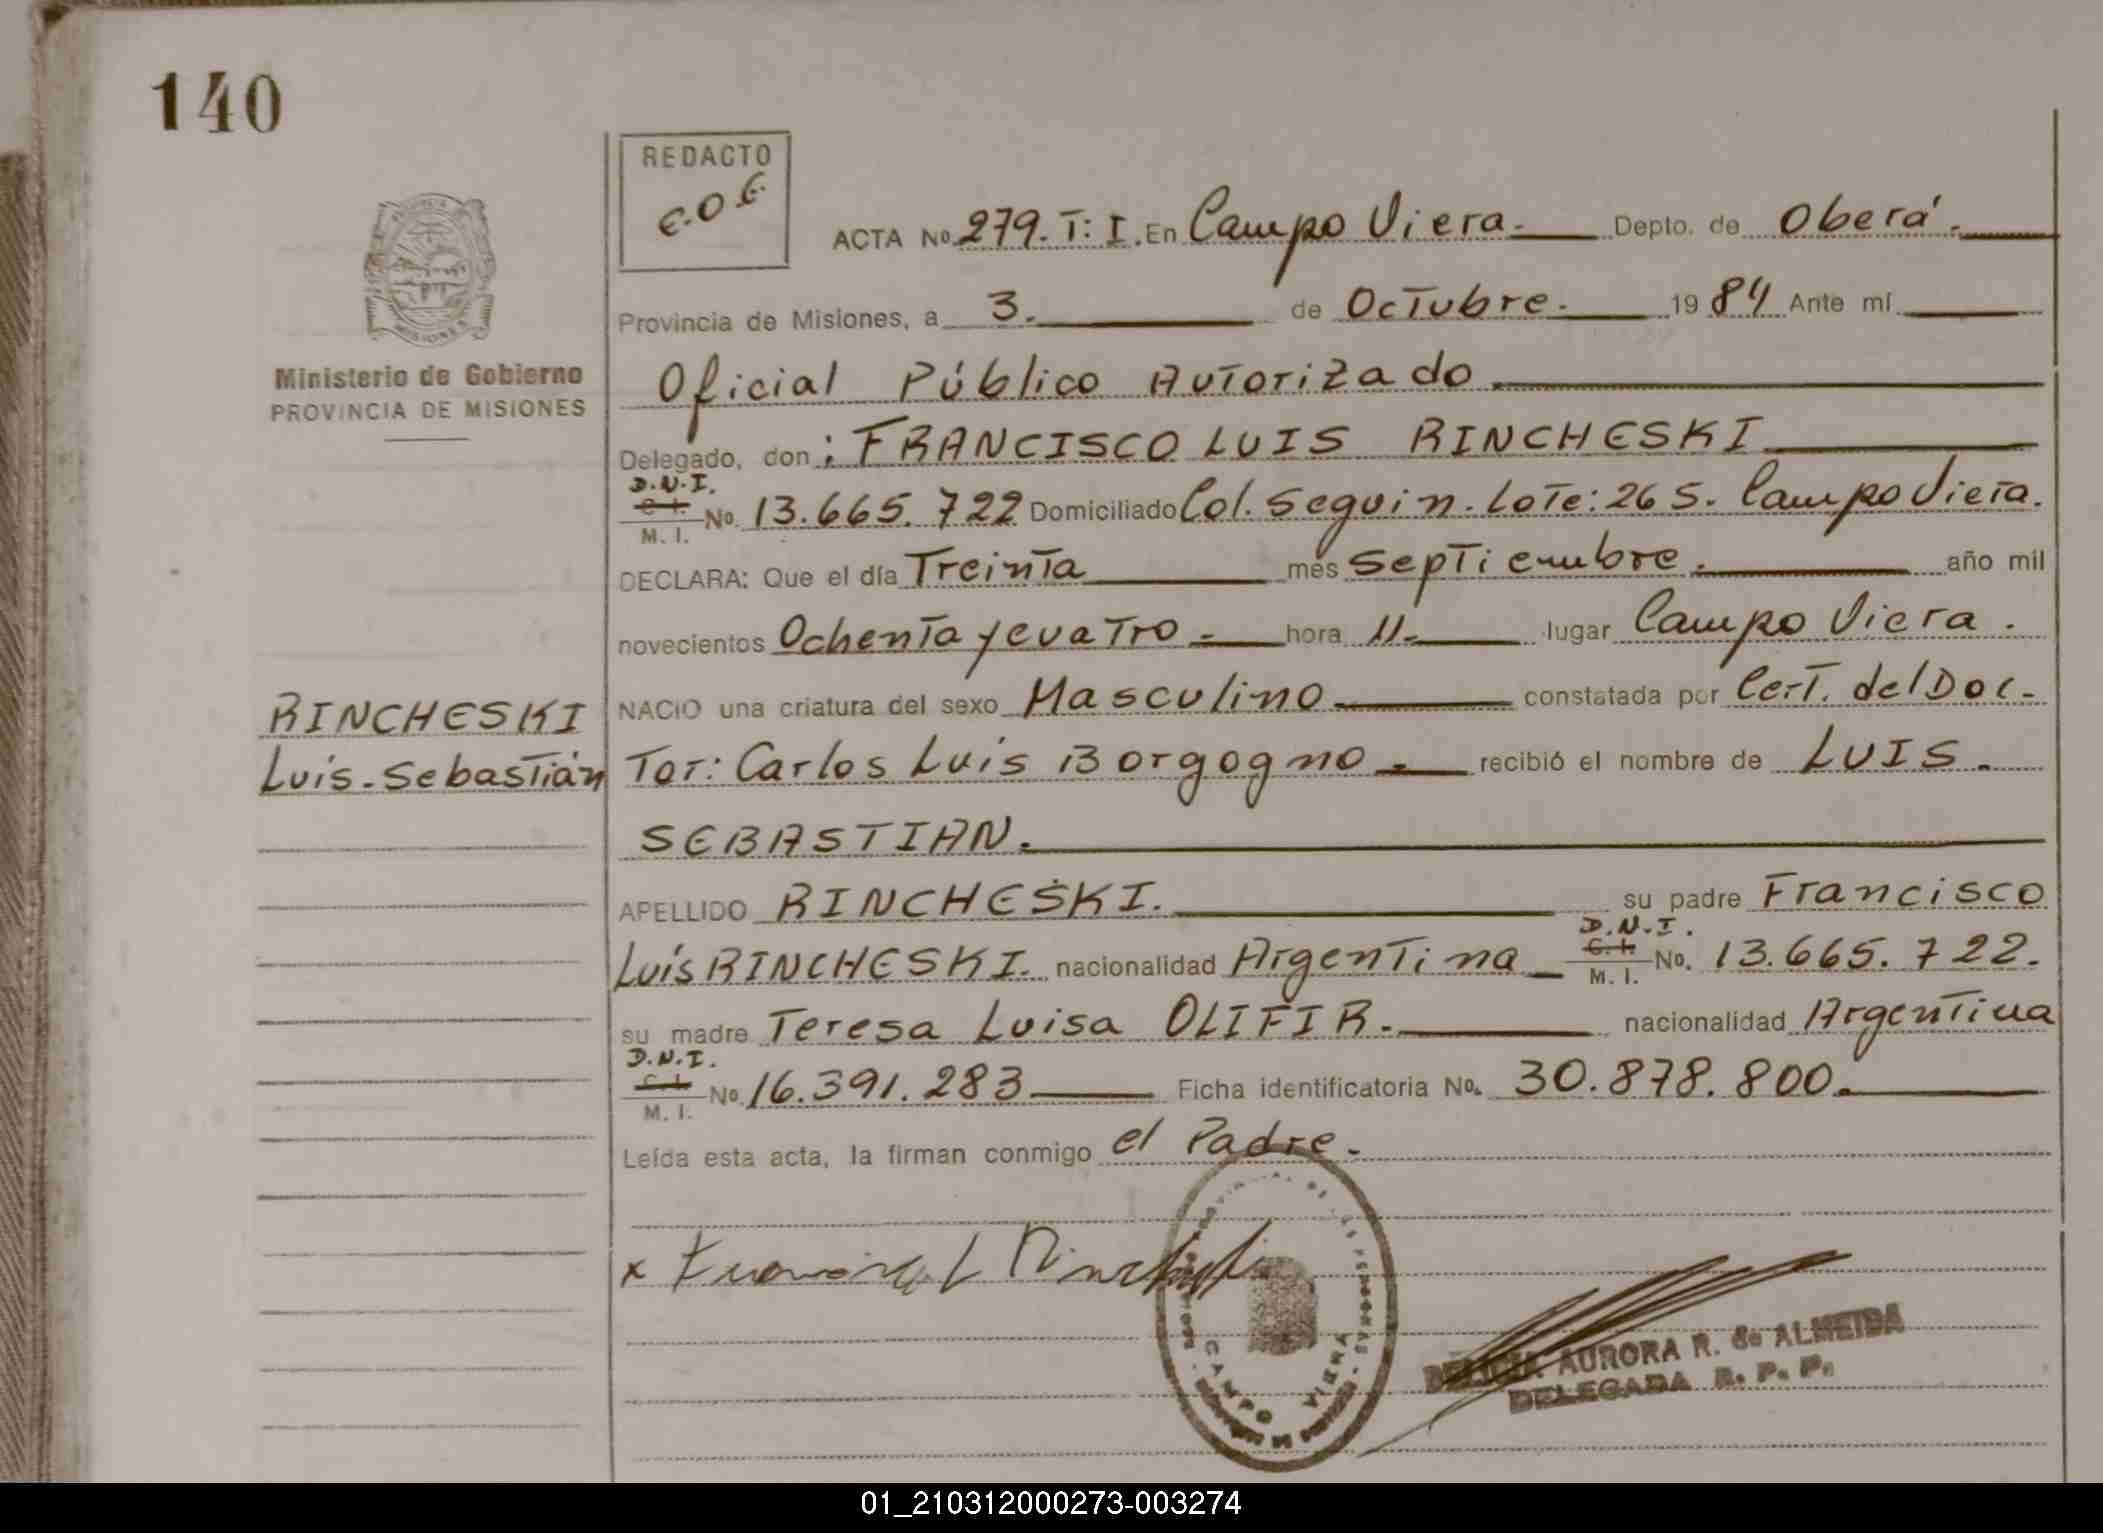 140
REDACTO
E.O.E
ACTA No. 279. T: I. En Campo Viera. Depto. de Oberá.
Provincia de Misiones, a 3. de Octubre. 19 84 Ante mí
Ministerio de Gobierno
PROVINCIA DE MISIONES
Oficial Público Autorizado.
Delegado, don: FRANCISCO LUIS RINCHESKI
D.N.I.
C. I.
M. I. No. 13.665.722 Domiciliado Col. Seguin. Lote: 265. Campo Viera.
DECLARA: Que el día Treinta mes Septiembre. año mil
novecientos Ochenta y cuatro. hora 11. lugar Campo Viera.
RINCHESKI
Luis-Sebastián
NACIO una criatura del sexo Masculino constatada por Cert. del Doc-
tor: Carlos Luis Borgogno. recibió el nombre de LUIS.
SEBASTIAN.
APELLIDO RINCHESKI. su padre Francisco
D.N.I.
Luis RINCHESKI. nacionalidad Argentina C. I. M. I. No. 13.665.722.
su madre Teresa Luisa OLIFIR. nacionalidad Argentina
D.N.I.
C. I.
M. I. No. 16.391.283 Ficha identificatoria No. 30.878.800.
Leída esta acta, la firman conmigo el Padre.
CAMPO VIERA
AURORA R. de ALMEIDA
DELEGADA R. P. P.
01_210312000273-003274